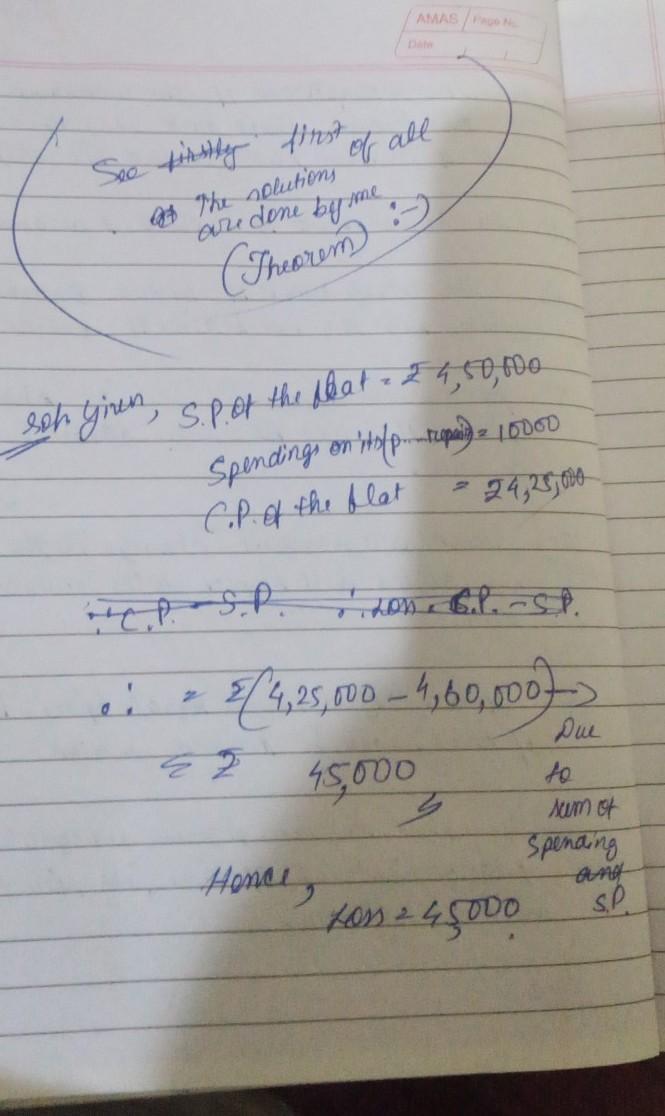 AMAS Page No.
Date
See firstly first of all
The solutions
are done by me :-)
(Theorem)
Soln Given, S.P. of the flat = ₹ 4,50,000
Spendings on its (p....repair) = 10000
C.P. of the flat = ₹4,25,000
∵ C.P. - S.P. ∴ Loss = C.P. - S.P.
∴ = ₹(4,25,000 - 4,60,000) →
Due
= ₹ 45,000 to
sum of
spending
Hence, and
Loss = 45,000 S.P.